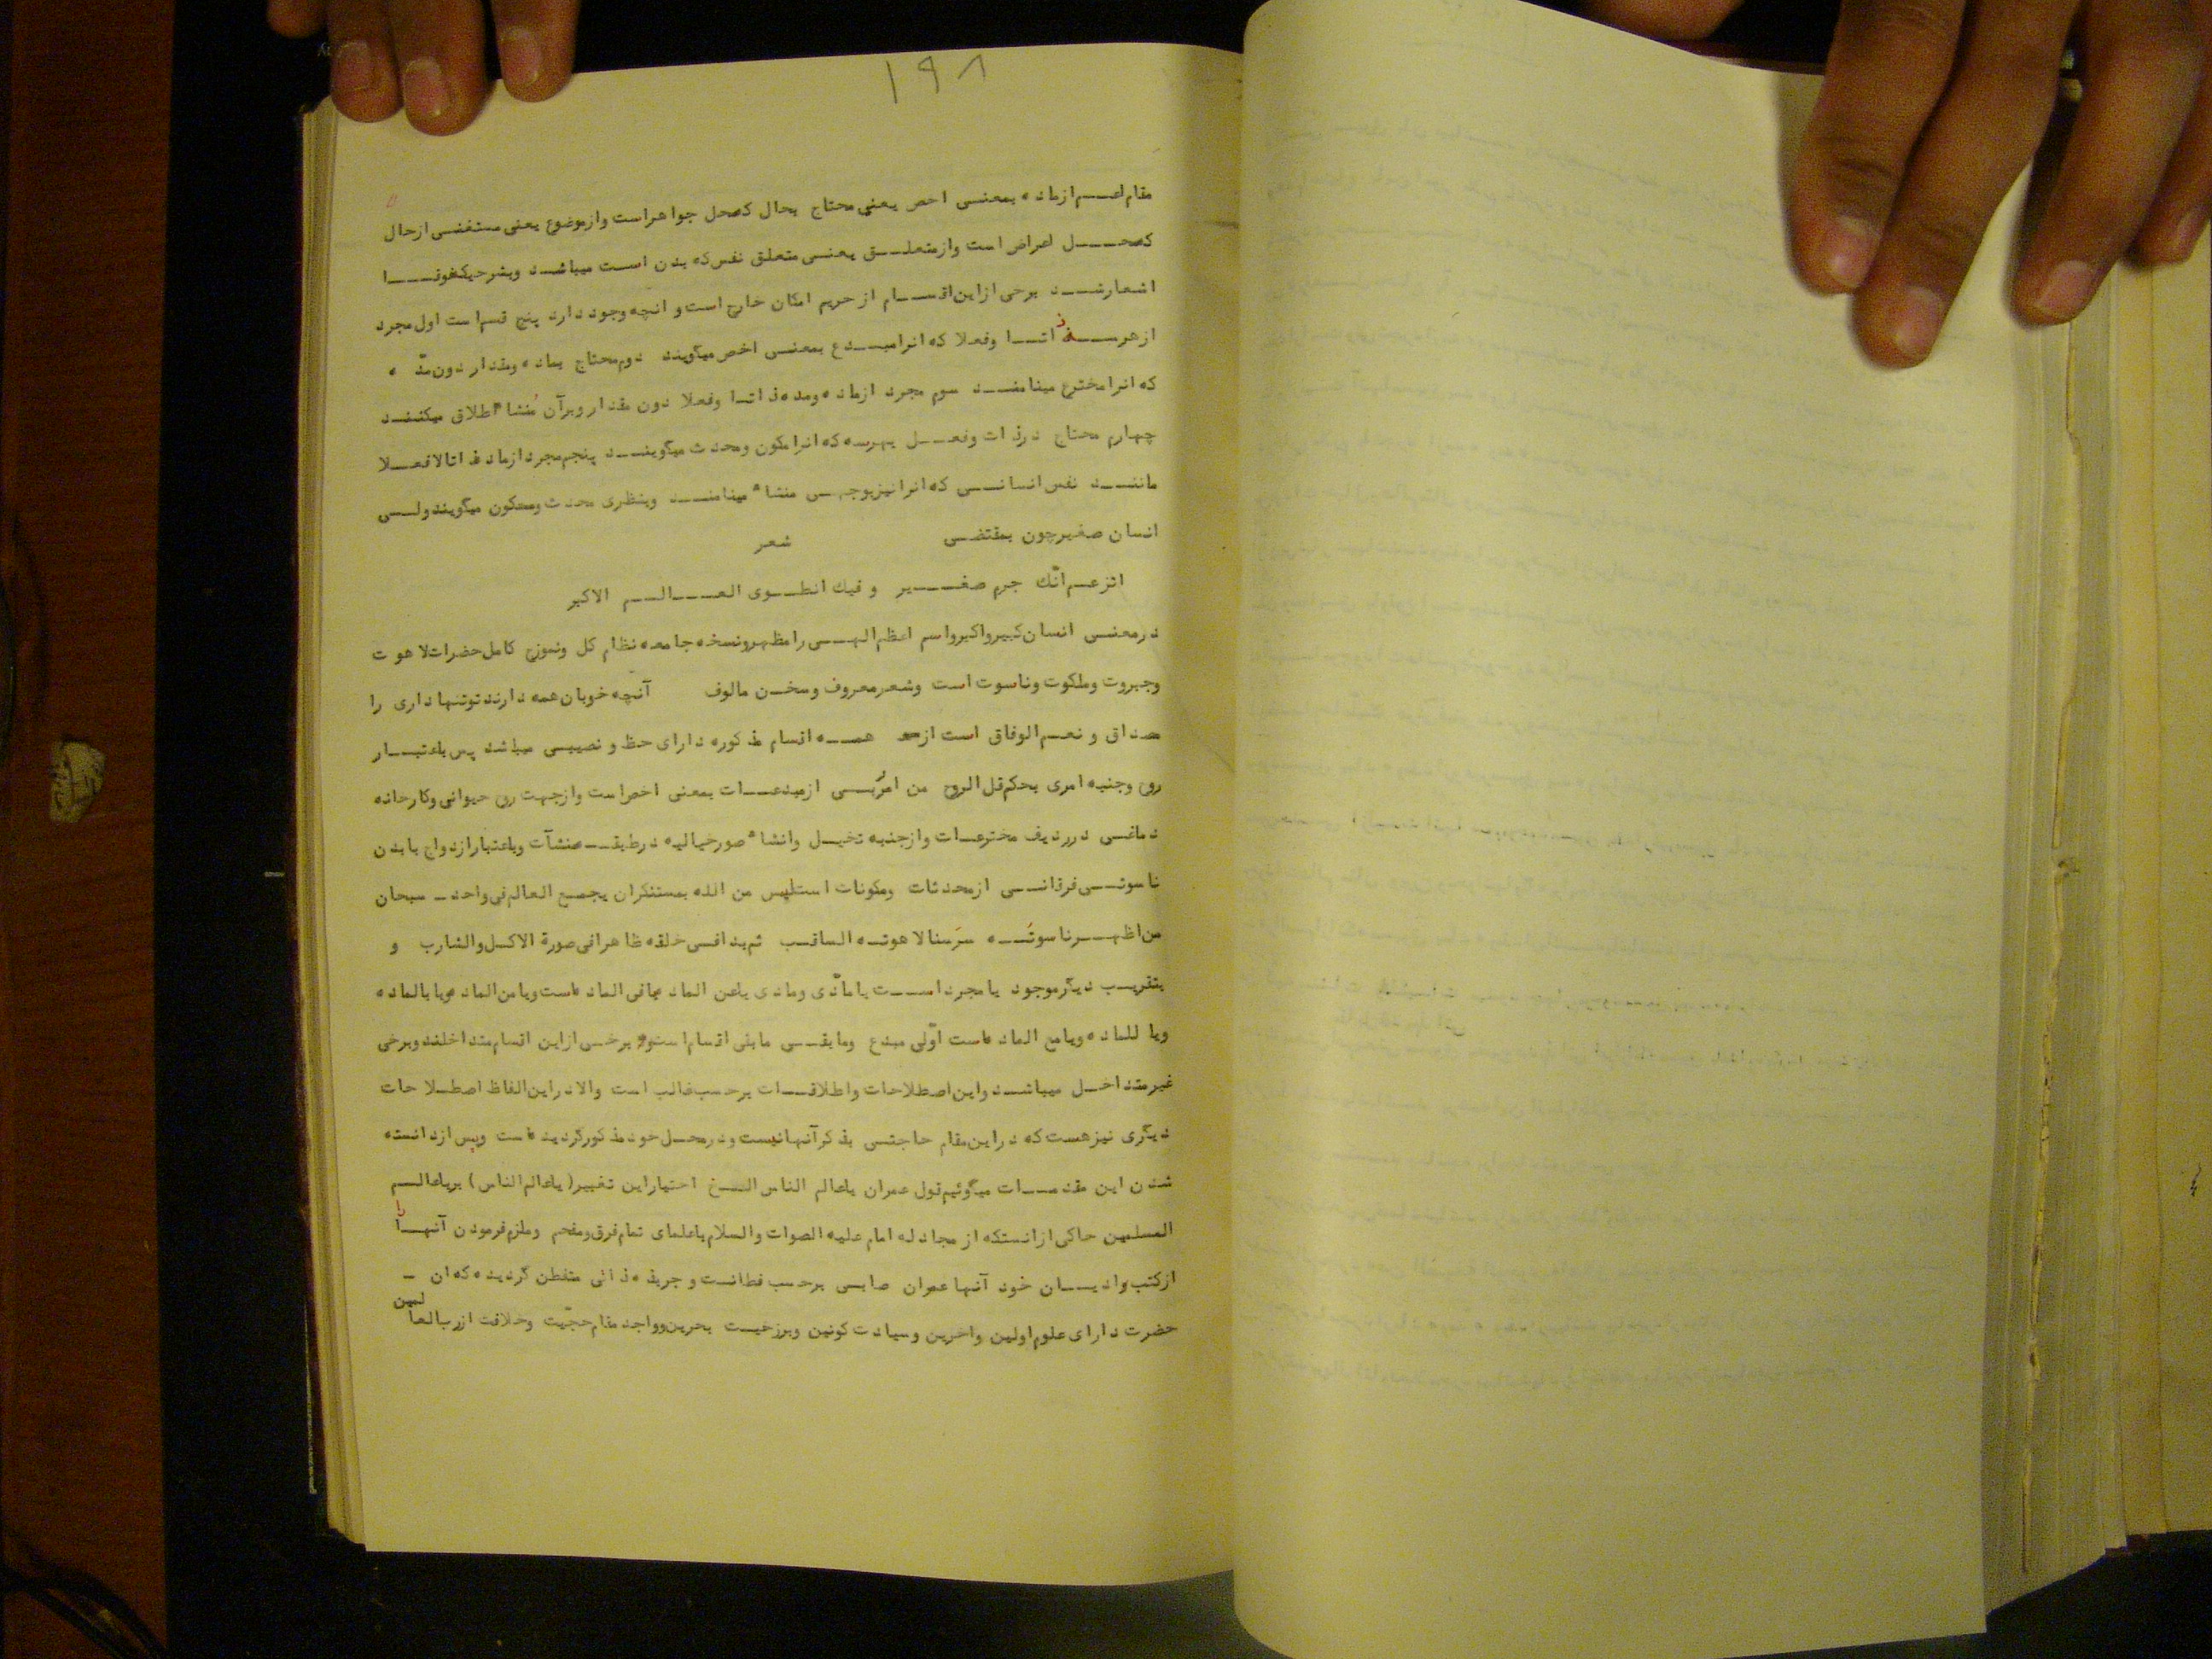 ۱۹۸
مقام اعم از ماده بمعنی اخص یعنی محتاج بحال کمحل جواهر است و از موضوع یعنی مستغنی از حال
کمحل اعراض است و از متعلق یعنی متعلق نفس که بدن است میباشد و بشرحیکه فوقا
اشعار شد برخی از این اقسام از حریم امکان خارج است و انچه وجود دارد پنج قسم است اول مجرد
از هر سه ذاتا وفعلا که انرا مبدع بمعنی اخص میگویند دوم محتاج بماده ومقدار دون مدّه
که انرا مخترع مینامند سوم مجرد از ماده ومده ذاتا وفعلا دون مقدار وبرآن مُنشاء اطلاق میکنند
چهارم محتاج در ذات وفعل بهر سه که انرا مکون ومحدث میگویند پنجم مجرد از ماده ذاتا لا فعلا
مانند نفس انسانی که انرا نیز بوجهی منشاء مینامند وبنظری محدث ومکون میگویند ولی
انسان صغیر چون بمقتضی شعر
اتزعم انّك جرم صغیر و فیك انطوی العالم الاکبر
در معنی انسان کبیر واکبر واسم اعظم الهی را مظهر ونسخه جامعه نظام کل ونموزج کامل حضرات لاهوت
وجبروت وملکوت وناسوت است وشعر معروف وسخن مالوف آنچه خوبان همه دارند تو تنها داری را
مصداق و نعم الوفاق است از همه اقسام مذکوره دارای حظ و نصیبی میباشد پس باعتبار
روح وجنبه امری بحکم قل الروح من امر ربی از مبدعات بمعنی اخص است واز جهت روح حیوانی وکارخانه
دماغی در ردیف مخترعات واز جنبه تخیل وانشاء صور خیالیه در طبقه منشآت وباعتبار ازدواج با بدن
ناسوتی فرقانی از محدثات ومکونات است لیس من الله بمستنکر ان یجمع العالم فی واحد ـ سبحان
من اظهر ناسوتُه سرَ سنا لاهوته الساقب ثم بدا فی خلقه ظاهرا فی صورة الاکل والشارب و
بتقریب دیگر موجود یا مجرد است یا مادّی ومادی یا عن الماده یا فی الماده است ویا من الماده ویا بالماده
ویا للماده ویا مع الماده است اوّلی مبدع ومابقی مابقی اقسام است و برخی از این اقسام متداخلند وبرخی
غیر متداخل میباشد واین اصطلاحات واطلاقات بر حسب غالب است والا در این الفاظ اصطلاحات
دیگری نیز هست که در این مقام حاجتی بذکر آنها نیست ودر محل خود مذکور گردیده است وپس از دانسته
شدن این مقدمات میگوئیم قول عمران یا عالم الناس الخ اختیار این تغییر (یا عالم الناس) بر یا عالم
المسلمین حاکی از انستکه از مجادله امام علیه الصوات والسلام با علمای تمام فرق ومفحم وملزم فرمودن آنها را
از کتب وادیان خود آنها عمران صابی بر حسب فطانت و جربذه ذاتی متفطن گردیده که ان ـ
حضرت دارای علوم اولین واخرین وسیادت کونین وبرزخیت بحرین وواجد مقام حجّیت وخلافت از رب العالمین